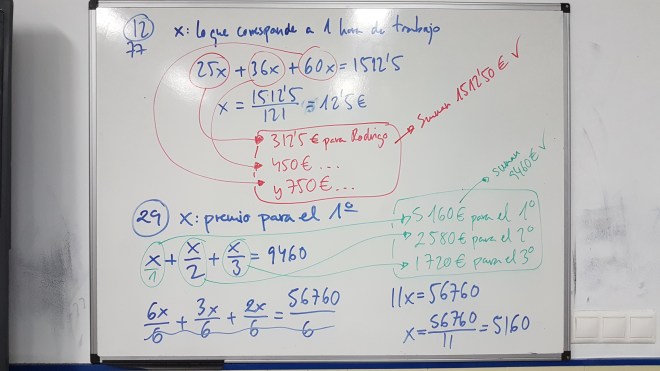 12
77
x: lo que corresponde a 1 hora de trabajo
25x + 36x + 60x = 1512'5
x = 1512'5 / 121 = 12'5 €
312'5 € para Rodrigo
450 € ...
y 750 € ...
suman 1512'50 € ✓
29 x: premio para el 1º
x/1 + x/2 + x/3 = 9460
5160 € para el 1º
2580 € para el 2º
1720 € para el 3º
suman
9460 € ✓
6x/6 + 3x/6 + 2x/6 = 56760/6
11x = 56760
x = 56760/11 = 5160